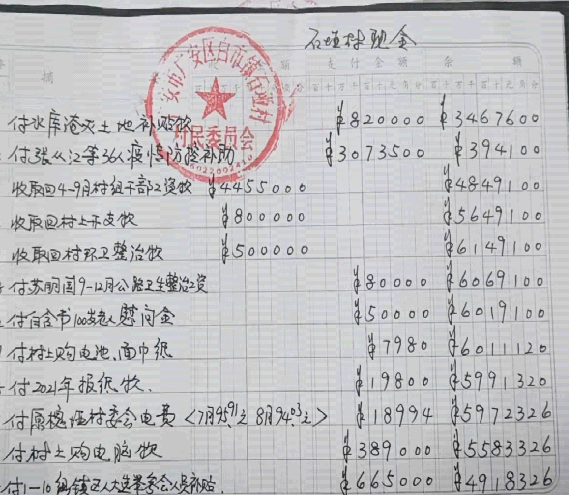 石垭村现金
摘 额 支付金额 余 额
付水库淹灭土地补贴款 ¥820000 ¥3467600
安市广安区白市镇石垭村
村民委员会
付张从江等36人疫情防控补助 ¥3073500 ¥394100
收取回4-9月村组干部工资款 ¥4455000 ¥4849100
收取回村上开支款 ¥800000 ¥5649100
收取回村环卫整治款 ¥500000 ¥6149100
付苏明国9-12月公路卫生整治工资 ¥80000 ¥6069100
付白含市100岁老人慰问金 ¥50000 ¥6019100
付村上购电池、面巾纸 ¥7980 ¥6011120
付2021年报纸款、 ¥19800 ¥5991320
付属槐垭村委会电费<7月95.91元 8月94.03元> ¥18994 ¥5972326
付村上购电脑款 ¥389000 ¥5583326
付1-10组镇区人大选举委会人员补贴. ¥665000 ¥4918326